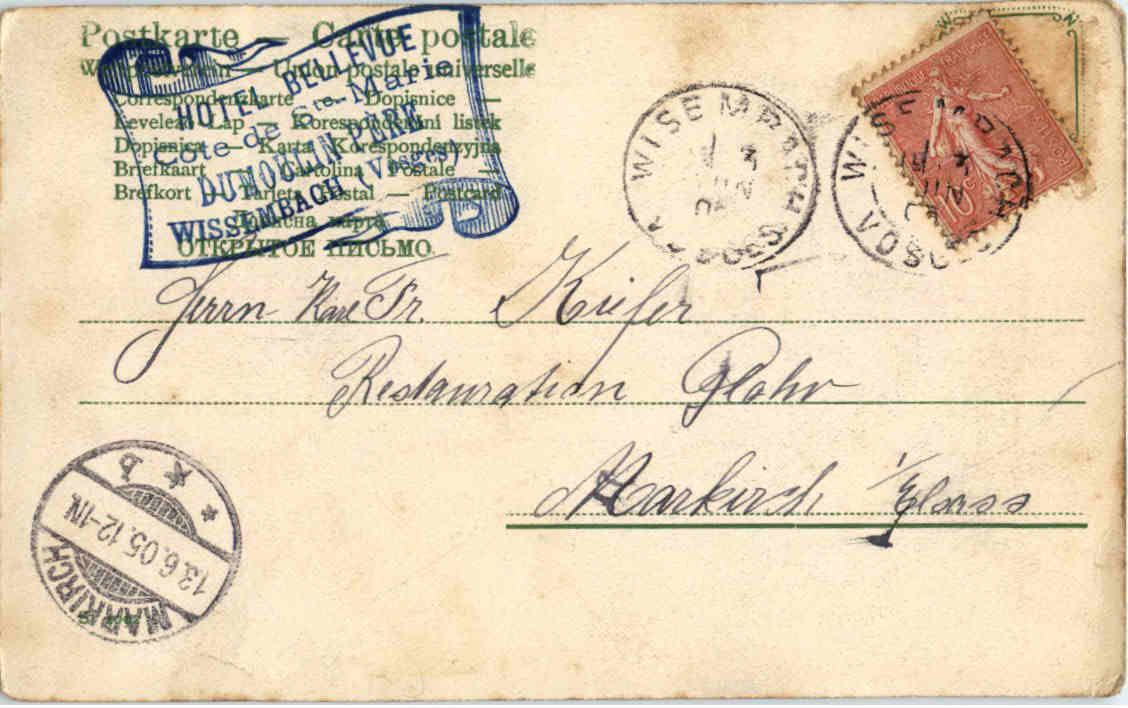 Postkarte — Carte postale
Weltpostverein — Union postale universelle
Correspondenzkarte — Dopisnice —
Levelező Lap — Korespondenční lístek
Dopisnica — Karta Korespondencyjna
Briefkaart — Cartolina Postale —
Brefkort — Tarjeta Postal — Postcard
ОТКРЫТОЕ ПИСЬМО.
HOTEL BELLEVUE
Côte de Ste-Marie
DUMOULIN
WISSEMBACH (Vosges)
WISEMBACH
JUIN
VOSGES
10
Herrn Karl Fr. Kiefer
Restauration Glohr
Markirch i/Elsass
MARKIRCH
13.6.05.12-1N.
* b *